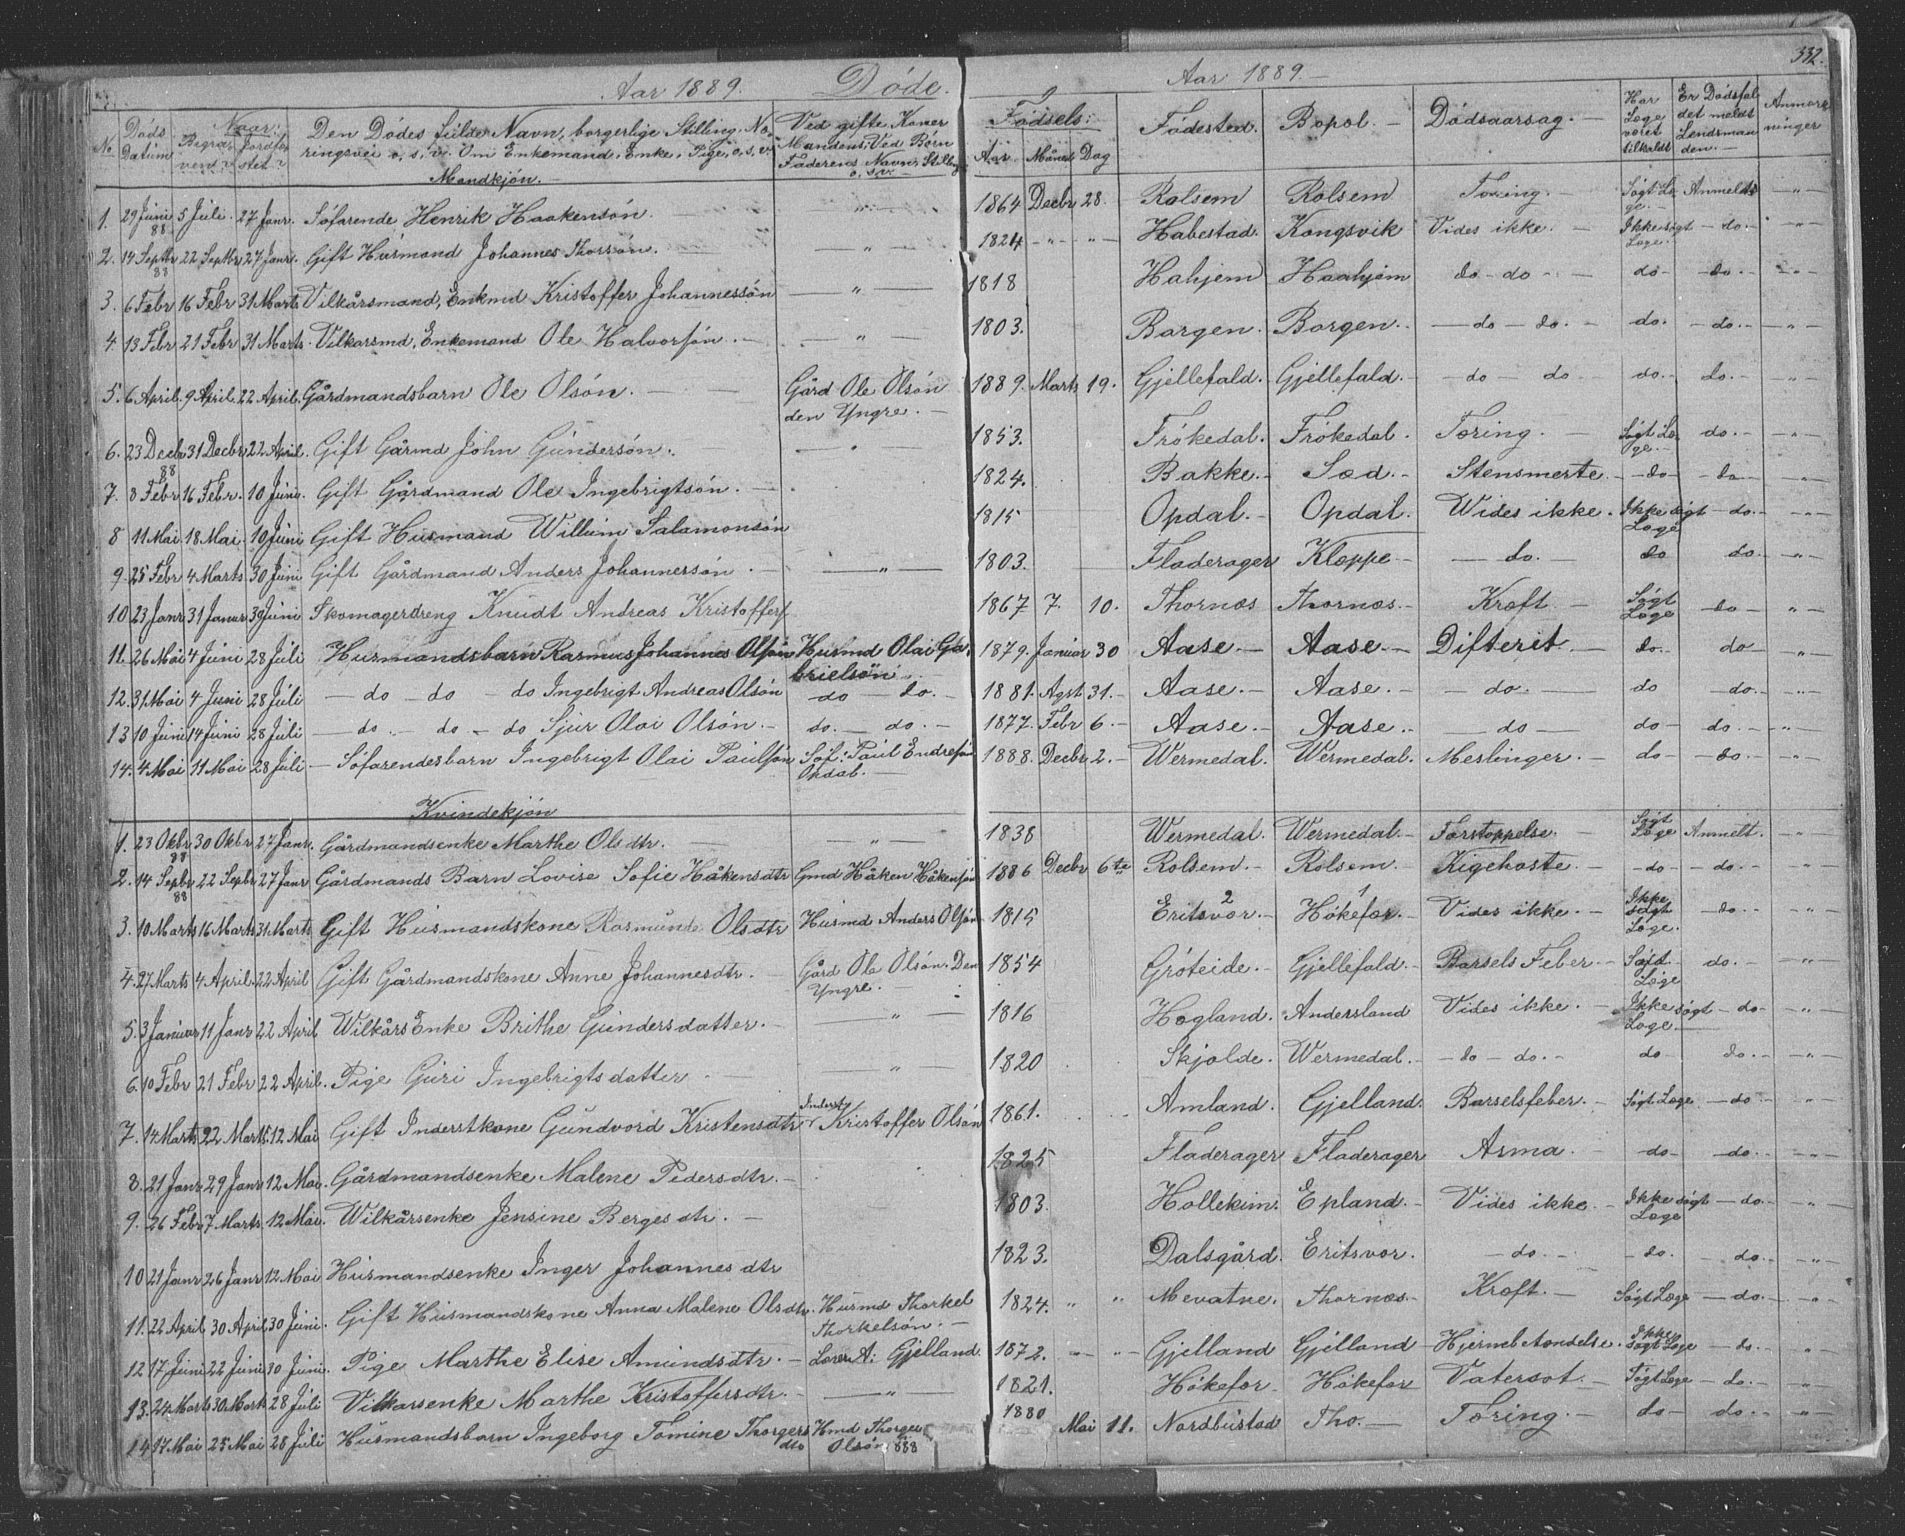 Aar 1889. Døde. Aar 1889. 332.
No Døds Datum Naar: Begravend? Jordfæstet? Den Dødes fulde Navn, borgerlige Stilling, Næringsvei o, s, v. Om Enkemand, Enke, Pige, o, s, v. Ved gifte Koner Mandens, Ved Børn Faderens Navn, Stilling o. s. v. Fødsels: Aar Måned Dag Fødested. Bopæl. Dødsaarsag. Har Læge været tilkaldt Er Dødsfaldet meldt Lendsmanden. Anmærkninger
Mandkjøn.
1. 29 Juni 88 5 Juli. 27 Janr. Søfarende Henrik Haakensøn. — " — 1864 Decbr 28. Rolsem Rolsem Tæring. Søgt Læge. Anmeldt — " —
2. 14 Septbr 88 22 Septbr 27 Janr. Gift Husmand Johannes Thorsøn. — " — 1824 — " — " — Habestad. Kongsvik Vides ikke. Ikke søgt Læge. — do. — — " —
3. 6 Febr 16 Febr 31 Marts Vilkårsmand, Enkmd Kristoffer Johannessøn — " — 1818 Hahjem Haahjem do - do - do- - do. — — " —
4. 13 Febr 21 Febr 31 Marts. Vilkarsmd, Enkemand Ole Halvorsøn. — " — 1803. Borgen. Borgen. — do — do. — do. — do. — — " —
5. 6 April. 9 April. 22 April. Gårdmandsbarn Ole Olsøn. — Gård Ole Olsøn den Yngre. — 1889. Marts 19. Gjellefald. Gjellefald. — do — do do. — do. — — " —
6. 23 Decbr 88 31 Decbr 22 April. Gift Gårmd John Gundersøn. — " 1853. Frøkedal. Frøkedal. Tæring. — Søgt Læge. do. — — " —
7. 8 Febr 16 Febr. 10 Juni. Gift Gårdmand Ole Ingebrigtsøn. — 1824. Bakke. Sæd. Stensmerte. — do — do — — " —
8 11 Mai 18 Mai. 10 Juni Gift Husmand Willum Salamonsøn 1815 Opdal. — Opdal. Wides ikke. Ikke søgt Læge — do. — — " —
9. 25 Febr 4 Marts 30 Juni Gift Gårdmand Anders Johannersøn. — " — 1803. Fladerager Kleppe — — do. — do do. — — " —
10. 23 Janr 31 Januar 30 Juni Skomagerdreng Knudt Andreas Kristoffers 1867 7. 10. Thornæs Thornæs. — Kræft. — Søgt Læge — do — — " —
11. 26 Mai 4 Juni 28 Juli Husmandsbarn Rasmus Johannes Olsøn Husmd Olai Gabrielsøn 1879. Januar 30 Aase. — Aase. — Difterit. — do. — do — " —
12. 31 Mai 4 Juni 28 Juli — do — do — do Ingebrigt Andreas Olsøn do — do. — 1881. Agst 31. — Aase. — Aase. — — do. — do do. — — " —
13 10 Juni 14 Juni 28 Juli — do — do — do Sjur Olai Olsøn. — do. — do. — 1877. Febr 6. — Aase. — Aase. — — do — do — do. — — " —
14. 4 Mai 11 Mai 28 Juli — Søfarendesbarn Ingebrigt Olai Paulsøn Søf: Paul Endresøn Opdal. — 1888. Decbr 2. — Wermedal. Wermedal. Meslinger. — do — do. — — " —
Kvindekjøn
1. 23 Okbr 88 30 Okbr 27 Janr. Gårdmandsenke Marthe Olsdtr. — " — 1838 Wermedal. Wermedal. Forstoppelse. Søgt Læge Anmelt. "
2. 14 Sepbr 88 22 Sepbr 27 Janr Gårdmands Barn Lovise Sofie Håkensdtr Gmd Håken Håkensøn 1886 Decbr 6te Rolsem. — Rolsem. — Kigehoste. — do — — do. — "
3. 10 Marts 16 Marts 31 Marts Gift Husmandskone Rasmunde Olsdtr Husmd Anders Olsøn 1815 Eritsvor. — 2 Høkefor. — 1 Vides ikke. — Ikke søgt Læge. — do. — "
4. 27 Marts 4 April. 22 April Gift Gårdmandskone Anne Johannesdtr. Gård Ole Olsøn. Den Yngre. — 1854 Grøteide. — Gjellefald. — Barsels Feber. — Søgt Læge do. — — " —
5. 3 Januar 11 Janr 22 April WilkårsEnke Brithe Gundersdatter. — " — 1816 Høgland. Andersland Vides ikke. — Ikke søgt Læge — do — — " —
6. 10 Febr 21 Febr 22 April. Pige Guri Ingebrigtsdatter — " — 1820 Skjolde. Wermedal. — do — do. — do — do. — — " —
7. 14 Marts 22 Marts. 12 Mai Gift Inderstkone Gundvord Kristensdtr Inderst Kristoffer Olsøn 1861. Amland. Gjelland. Barselsfeber. — Søgt Læge — do — "
8. 21 Janr 29 Janr 12 Mai. Gårdmandsenke Malene Pedersdtr. — 1825 Fladerager Fladerager Asma. — do — — do — — " —
9. 26 Febr 7 Marts 12 Mai. Wilkårsenke Jensine Bergesdtr. — 1803. Hollekim. Epland. — Vides ikke. Ikke søgt Læge — do — "
10 21 Janr 26 Janr 12 Mai Husmandsenke Inger Johannesdtr 1823. Dalsgård. Eritsvor. — do. — - do. — do. — — " —
11. 22 April 30 April 30 Juni. Gift Husmandskone Anna Malene Olsdtr. Husmd Thorkel Thorkelsøn. — 1824. " " Mevatne. Thornæs. Kræft. — Søgt Læge — do. — "
12 17 Juni 22 Juni 30 Juni. Pige Marthe Elise Amundsdtr. — A: Gjelland 1872. — " — " — Gjelland Gjelland Hjernbetændelse. Ikke Søgt Læge — do. "
13. 24 Marts 30 Marts 28 Juli Vilkarsenke Marthe Kristoffersdtr. — " 1821. Høkefor. Høkefor Vatersot. — Søgt Læge — do. — "
14 17 Mai 25 Mai 28 Juli Husmandsbarn Ingeborg Tomine Thorgersdtr Hmd Thorger Olsøn 1880 Mai 11. Nordbustad Tho. — Tæring. — do — do. — "